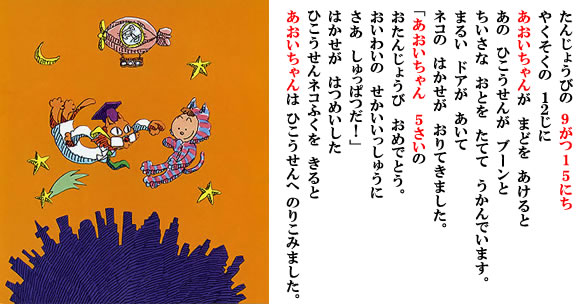 たんじょうびの 9がつ15にち
やくそくの 12じに
あおいちゃんが まどを あけると
あの ひこうせんが ブーンと
ちいさな おとを たてて うかんでいます。
まるい ドアが あいて
ネコの はかせが おりてきました。
「あおいちゃん 5さいの
おたんじょうび おめでとう。
おいわいの せかいいっしゅうに
さあ しゅっぱつだ!」
はかせが はつめいした
ひこうせんネコふくを きると
あおいちゃんは ひこうせんへ のりこみました。